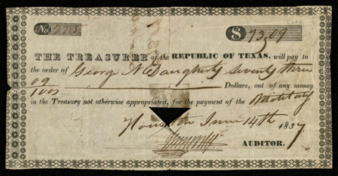 No $73.09
THE TREASURER OF THE REPUBLIC OF TEXAS, will pay to
the order of George Seventy three
09
100 Dollars, out of any money
in the Treasury not otherwise appropriated, for the payment of the Military
Houston June 14th 1837
AUDITOR.